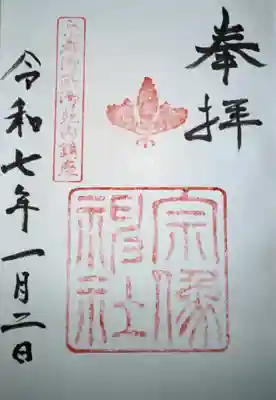 奉拝
宗像
神社
内鎮座
令和七年一月二日